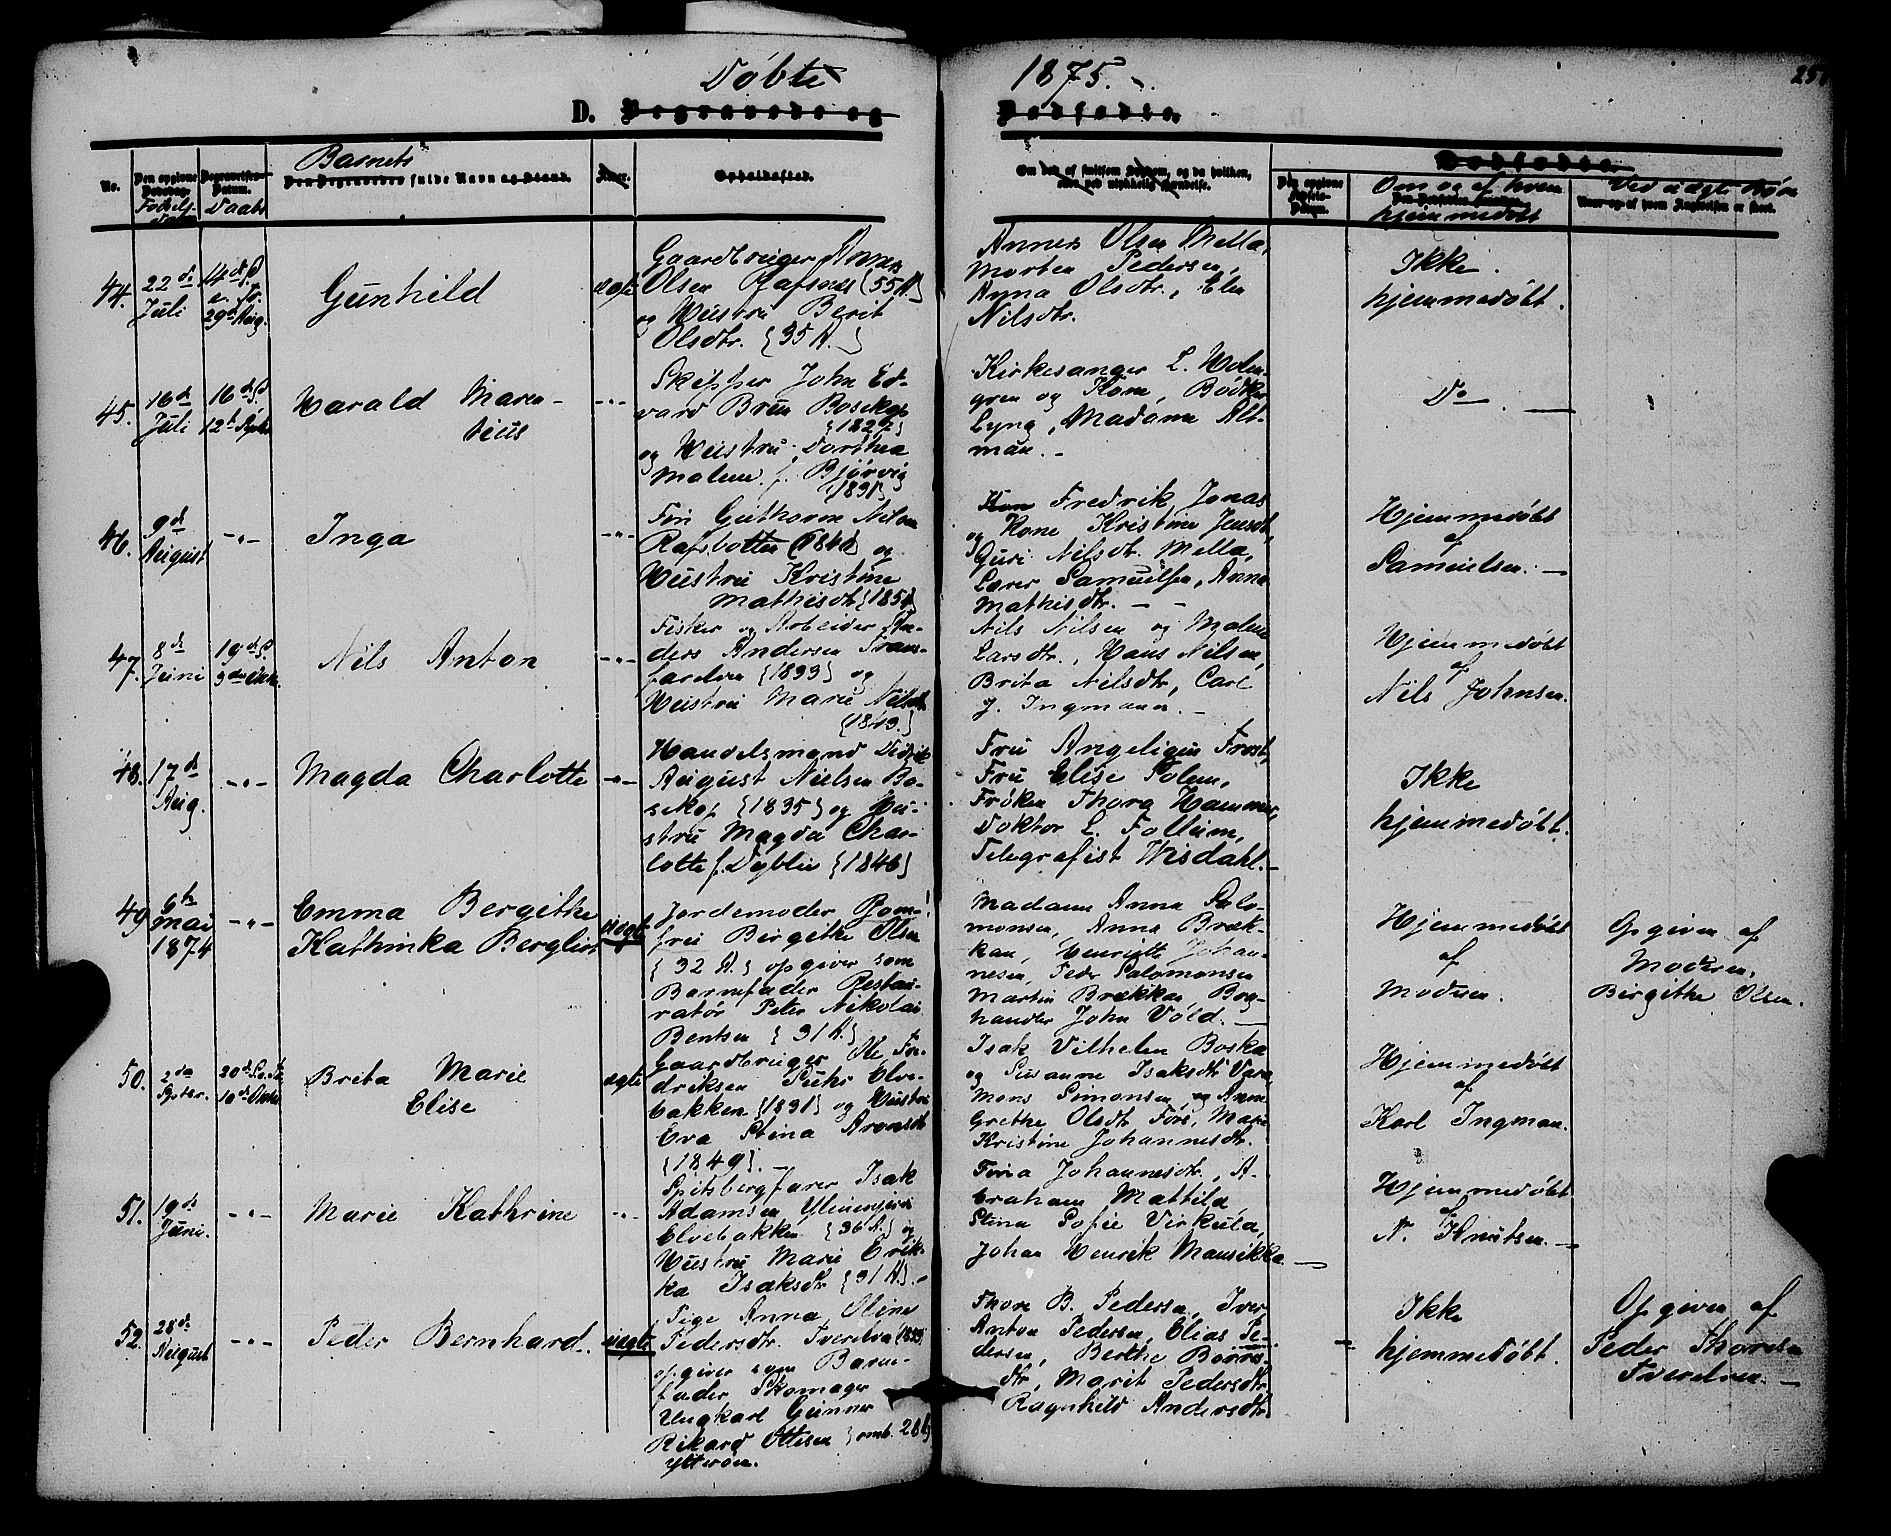 Døbte
1875.
251
D. Begravede og
Dødfødte.
No.
Den opgivne Dødsdag.
Fødsels-
Datum
Begravelses-Datum.
Daabs
Barnets
Den Begravedes fulde Navn og Stand.
Alder.
Opholdssted.
Dødfødte.
Om og af hvem
hjemmedøbt
Ved uægte Børn
Naar og af hvem Angivelsen er skeet.
44.
22de
Juli
29de Aug.
Gunhild
ægte
Gaardbruger Annes
Olsen Rafsnes {55 A.}
og Hustru Berit
Olsdtr. {35 A.}
Annes Olsen Mella,
Morten Pedersen,
Anna Olsdtr., Elen
Nilsdtr.
Ikke
hjemmedøbt.
45.
16de
Juli
Harald Maren-
tius
-"-
Skipper John Ed-
vard Brun Bosekop
{1827}
og Hustru Dorthea
Malene f. Bjørvig
{1831}
Kirkesanger L. Holm-
gren og Kone, Bødker
Lyng, Madame Alt-
man. -
Do. -
46.
9de
August
-"-
Inga
-"-
Fin Guthorm Nilsen
Rafsbotten {1841} og
Hustru Kristine
Mathisdtr. {1851}
Fredrik Jonas
og Kone Kristine Jensdtr,
Guri Nilsdtr. Mella,
Lærer Samuelsen, Anna
Mathisdtr. - -
Hjemmedøbt
af
Samuelsen. -
47.
8de
Juni
Nils Anton
-"-
Fisker og Arbeider An-
ders Andersen Trans-
farelven {1833} og
Hustru Marie Nilsdtr
{1843.}
Nils Nilsen og Malene
Larsdtr., Hans Nilsen,
Brita Nilsdtr, Carl
J. Ingmann. -
Hjemmedøbt
af
Nils Johnsen.
48.
17de
Aug.
-"-
Magda Charlotte
-"-
Handelsmand Didrik
August Nielsen Bo-
sekop {1835} og Hu-
stru Magda Char-
lotte f. Dyblie {1846}
Fru Angeliqua Frost,
Fru Elise Solem,
Frøken Thora Hammer,
Doktor L. Follum,
Telegrafist Wisdahl. -
Ikke
hjemmedøbt.
49
6te
Mai
1874
-"-
Emma Bergithe
Kathinka Bergliot
uægte
Jordemoder Jom-
fru Birgithe Olsen
{32 A.} opgiver som
Barnefader Restau-
ratør Peter Nikolai
Bentsen {31 A.}
Madam Anna Salo-
monsen, Anna Bræk-
kan, Henriette Johan-
nesen, Peder Salomonsen
Martin Brækkan, Bog-
handler John Vold. -
Hjemmedøbt
af
Moderen.
Opgiven af
Moderen,
Birgithe Olsen.
50.
2den
Septbr.
Brita Marie
Elise
ægte
Gaardbruger Ole Fre-
driksen Suhr Elve-
bakken {1831} og Hustru
Eva Stina Aronsdtr
{1849}. -
Isak Vilhelm Boska
og Susanne Isaksdtr Vara,
Mons Simonsen og Anne
Grethe Olsdtr Fors, Marie
Kristine Johannesdtr.
Hjemmedøbt
af
Karl Ingman.
51.
19de
Juni.
-"-
Marie Kathrine
-"-
Spitsbergfarer Isak
Adamsen
Elvebakken {36 A.} og
Hustru Marie Erik-
ka Isaksdtr {31 A.}. -
Fina Johannesdtr, A-
braham Mattila,
Stina Sofie Virkula,
Johan Henrik Mansikka. -
Hjemmedøbt
af
N. Knutsen. -
52.
28de
August
-"-
Peder Bernhard.
uægte
Pige Anna Oline
Pedersdtr. Tverelva
opgiver som Barne-
fader Skomager
Ungkarl Gunner
Rikard Ottesen {omtr. 28 A}
Ytterøen.
Thore B. Pedersen, Iver
Anton Pedersen, Elias Pe-
dersen, Berthe Børres-
dtr, Marit Pedersdtr
Ragnhild Andersdtr
Ikke
hjemmedøbt.
Opgiven af
Peder Thoresen
Tverelven. -